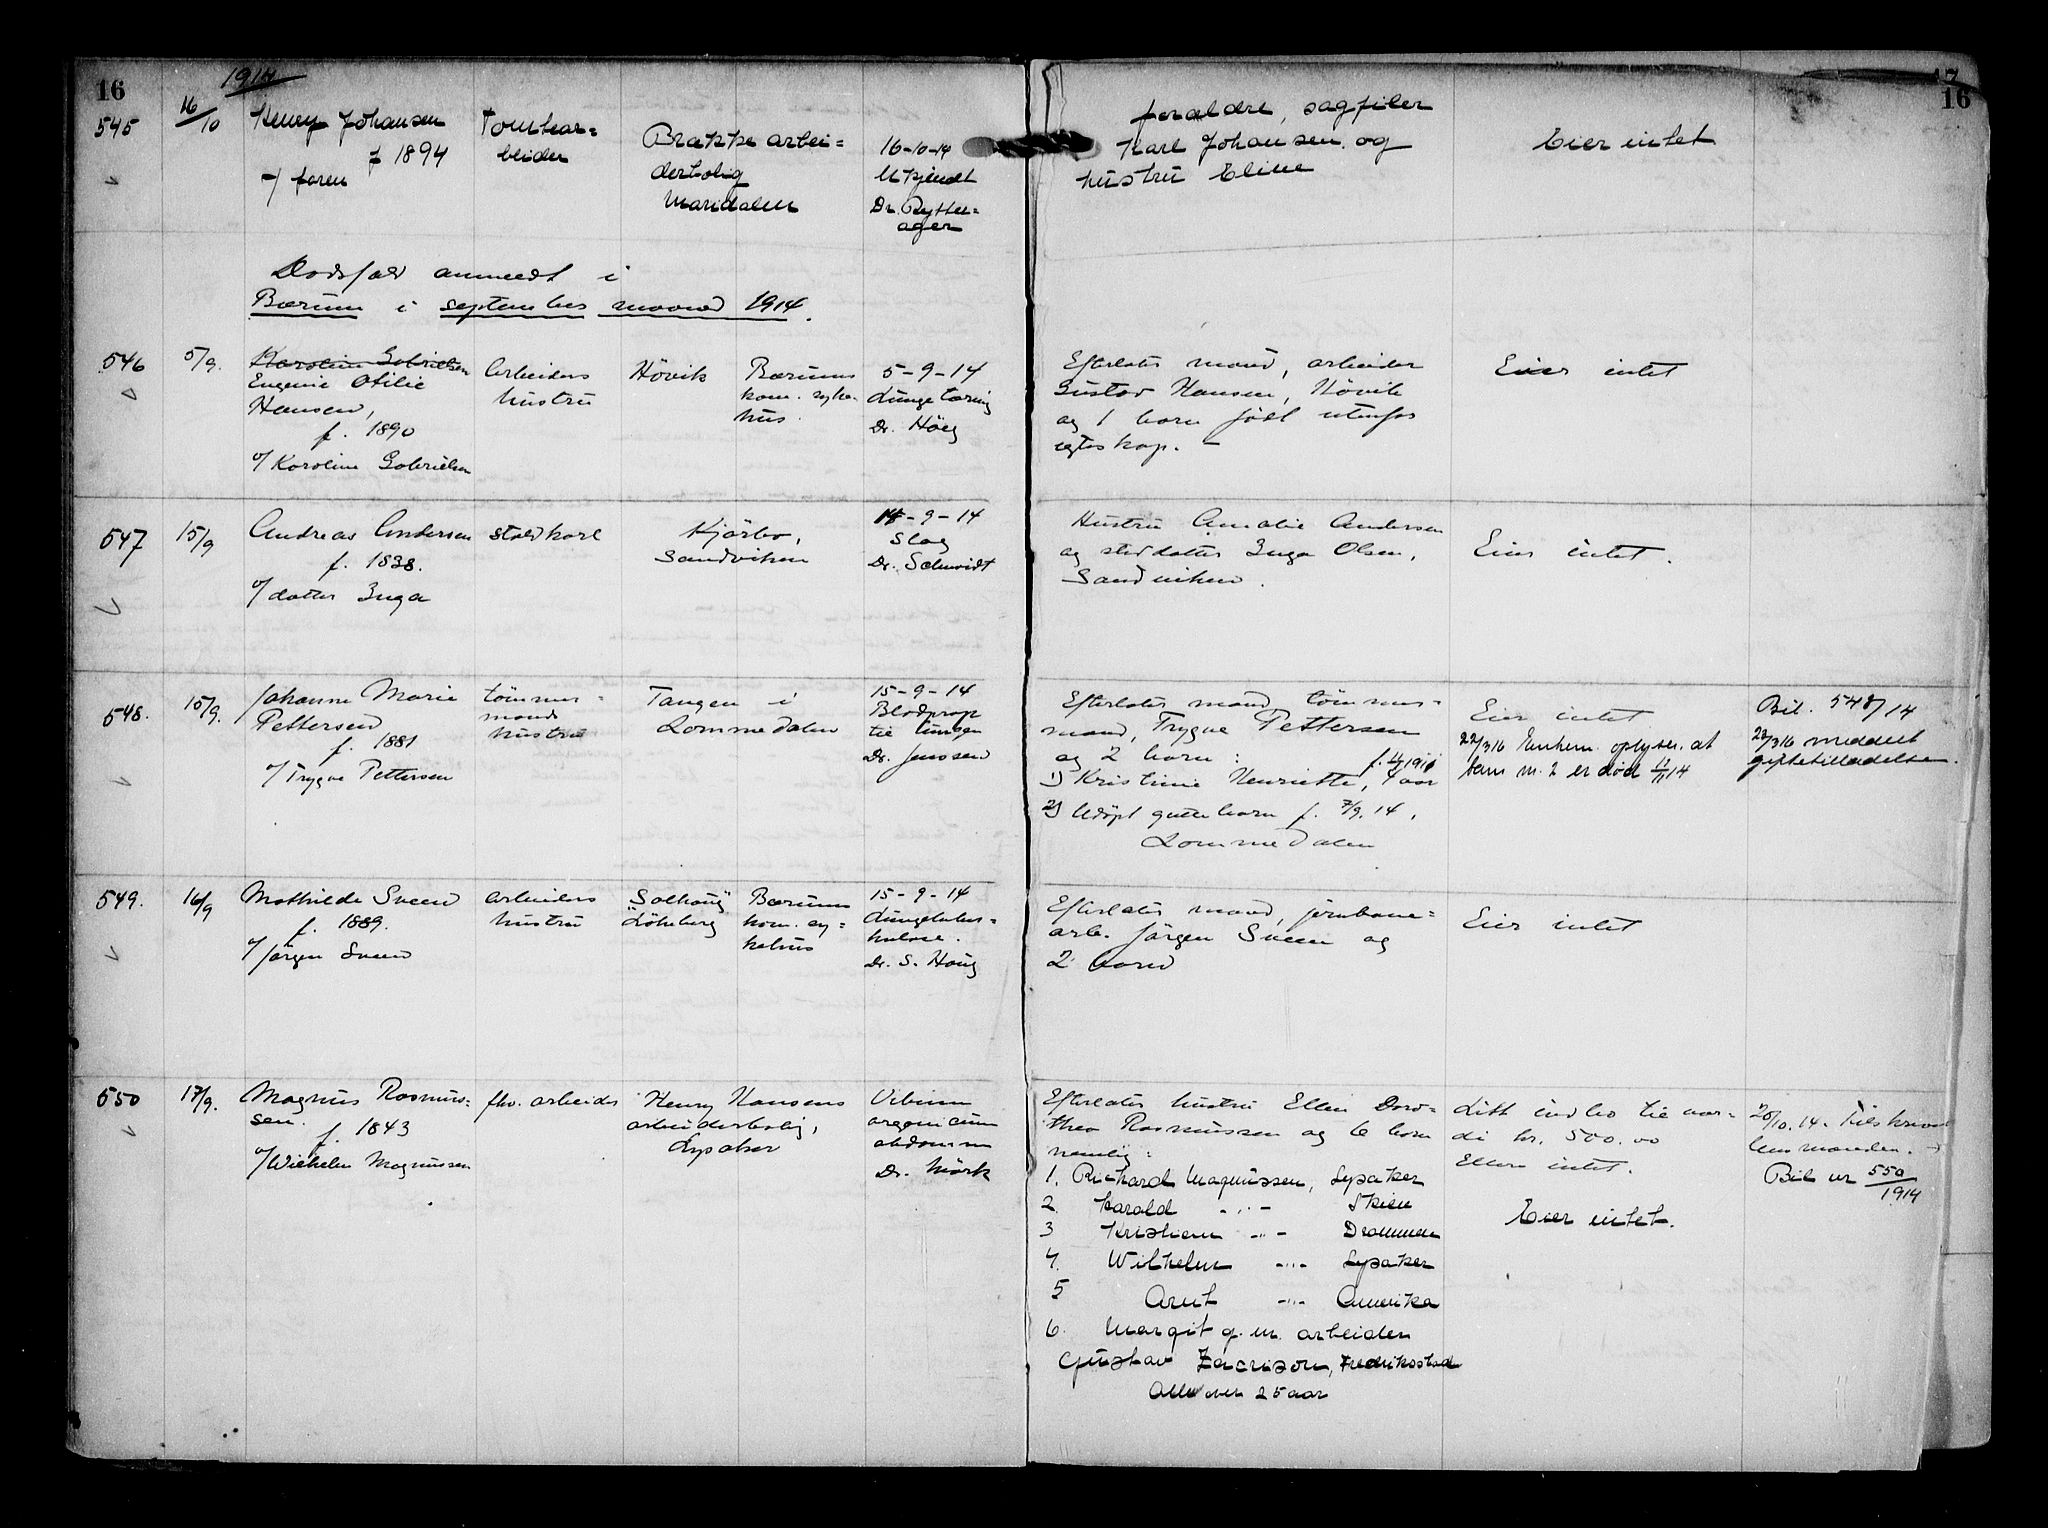 16
1914
17
16
545
16/10
Henry Johansen
f 1894
v/ faren
Tomtear=
beider
Brakke arbei=
derbolig
Maridalen
16-10-14
Ukjendt
Dr. Rytter=
ager
foræld­re, sagfiler
Karl Johansen og
hustru Eline
Eier intet
Dødsfald anmeldt i
Bærum i september maaned 1914.
546
5/9.
Karoline Gabrielsen
Eugenie Otilie
Hansen,
f. 1890
v/ Karoline Gabrielsen
Arbeiders
hustru
Hövik
Bærums
kom. syke-
hus.
5-9-14
Lungetæring
Dr. Höeg
Efterlater mand, arbeider
Gustav Hansen, Hövik
og 1 barn födt utenfor
egteskap. -
Eier intet
547
15/9
Andreas Andersen
f. 1838.
v/ datter Inga
staldkarl
Kjörbo,
Sandviken
14-9-14
Slag
Dr. Schmidt
Hustru Amalie Andersen
og steddatter Inga Olsen,
Sandviken.
Eier intet.
548.
15/9.
Johanne Marie
Pettersen
f. 1881
v/ Trygve Pettersen
tömmer=
mands
hustru
Tangen i
Lommedalen
15-9-14
Blodprop
til lungen
Dr. Jenssen
Efterlater mand tömmer=
mand, Trygve Pettersen
og 2 barn:
1) Kristine Henriette, 4 aar
2) Udöpt guttebarn f. 7/9.14,
Lommedalen
Eier intet
22/3 16 Enkem. oplyser at
barn nr. 2 er död 12/11 14
Bil. 548/14
22/3 16 meddelt
giftetilladelse.
549.
16/9
Mathilde Sveen
f. 1889.
v/ Jörgen Sveen
arbeiders
hustru
Solhaug
Lökeberg
Bærums
kom. sy=
kehus
15-9-14
Lungetuber=
kulose.
Dr. S. Höeg
Efterlater mand, jernbane=
arb. Jörgen Sveen og
2 barn
Eier intet
550
17/9.
Magnus Rasmus=
sen.
f. 1843
v/ Wilhelm Magnussen
fhv. arbeider
Henry Hansens
arbeiderbolig,
Lysaker
Vitium
organicum
abdomin
Dr. Mörk
Efterlater hustru Ellen Doro=
thea Rasmussen og 6 barn
nemlig:
1. Richard Magnussen, Lysaker
2. Harald -"- Skien
3 Kristian -"- Drammen
4. Wilhelm -"- Lysaker
5 Arnt -"- Amerika
6. Margit g. m. arbeider
Gustav Zacrison, Fredriksstad
Alle over 25 aar
Litt indbo til vær=
di kr. 500.00
Ellers intet.
Eier intet.
20/10.14. Tilskrevet
lensmanden.
Bil nr 550/1914